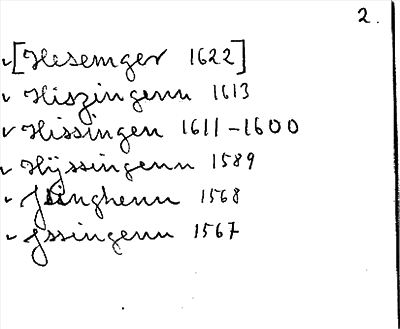 2.
[Hesemger 1622]
Hiszingenn 1613
Hissingen 1611-1600
Hÿssingenn 1589
Jsinghenn 1568
Jssingenn 1567